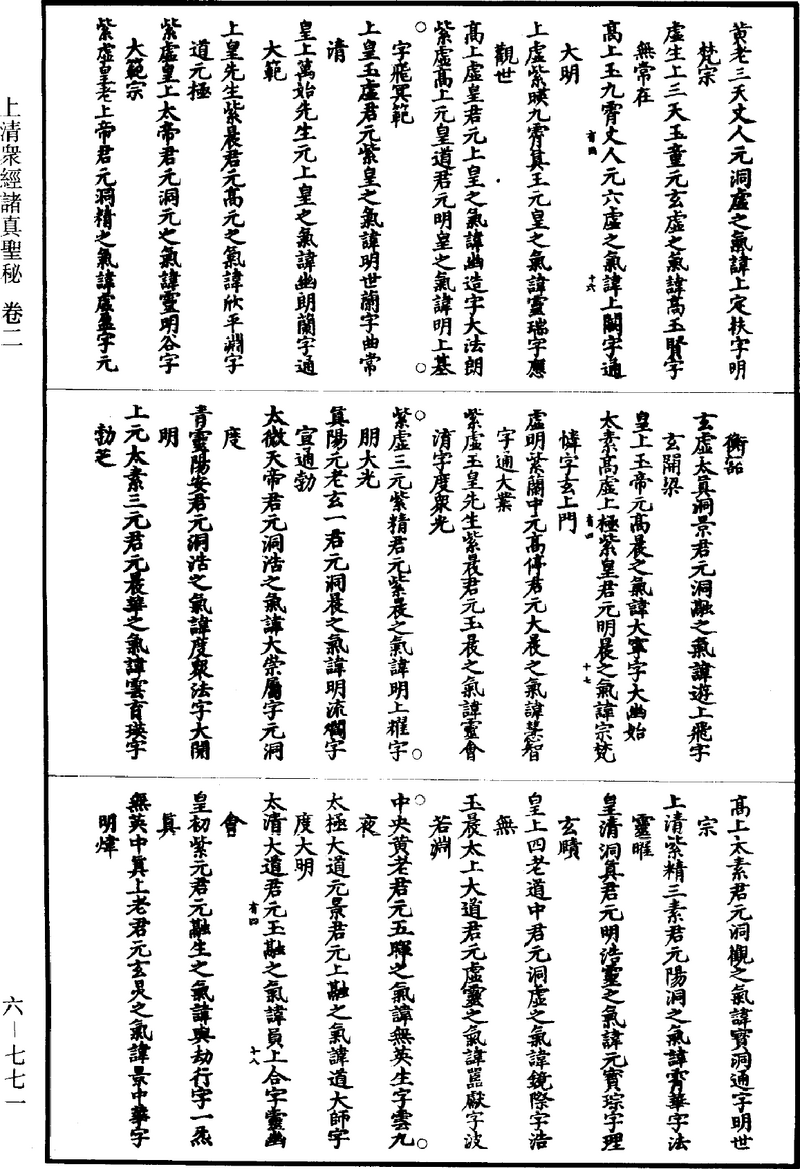 黃老三天丈人元洞虛之氣諱上定扶字明
梵宗
虛生上三天玉童元玄虛之氣諱高玉賢字
無常在
高上玉九霄丈人元六虛之氣諱上關字通
大明
上虛紫暎九霄真王元皇之氣諱靈瑞字應
觀世
高上虛皇君元上皇之氣諱幽造字大法朗
紫虛高上元皇道君元明皇之氣諱明上基
字飛冥範
上皇玉虛君元紫皇之氣諱明世蘭字曲常
清
皇上萬始先生元上皇之氣諱幽朗蘭字通
大範
上皇先生紫晨君元高元之氣諱欣平淵字
道元極
紫虛皇上太帝君元洞元之氣諱靈明谷字
大範宗
紫虛皇老上帝君元洞精之氣諱虛基字元
衡韶
玄虛太真洞景君元洞融之氣諱遊上飛字
玄開梁
皇上玉帝元高晨之氣諱大寧字大幽始
太素高虛上極紫皇君元明晨之氣諱宗梵
幃字玄上門
虛明紫蘭中元高停君元大晨之氣諱慧智
字通大業
紫虛玉皇先生紫晨君元玉晨之氣諱靈會
清字度衆光
紫虛三元紫精君元紫晨之氣諱明上耀字
朋大光
真陽元老玄一君元洞晨之氣諱明流爛字
宣通勃
太微天帝君元洞浩之氣諱大崇屬字元洞
度
青靈陽安君元洞浩之氣諱度衆法字大開
明
上元太素三元君元晨華之氣諱雲育瑛字
勃芝
高上太素君元洞觀之氣諱寶洞通字明世
宗
上清紫精三素君元陽洞之氣諱霄華字法
靈暉
皇清洞真君元明浩靈之氣諱元寶琮字理
玄賾
皇上四老道中君元洞虛之氣諱鏡際字浩
無
玉晨太上大道君元虛靈之氣諱嚚獻字波
若淵
中央黃老君元五暉之氣諱無英生字雲九
夜
太極大道元景君元上融之氣諱道大師字
度大明
太清大道君元玉融之氣諱員上合字靈幽
會
皇初紫元君元融生之氣諱與劫行字一炁
真
無英中真上老君元玄炅之氣諱景中華字
明煒
上清衆經諸真聖秘 卷二
六—七七一